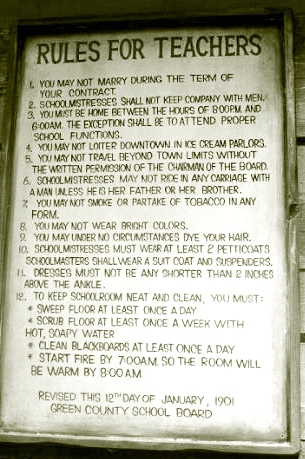 RULES FOR TEACHERS
1. YOU MAY NOT MARRY DURING THE TERM OF
YOUR CONTRACT.
2. SCHOOLMISTRESSES SHALL NOT KEEP COMPANY WITH MEN.
3. YOU MUST BE HOME BETWEEN THE HOURS OF 8:00 P.M. AND
6:00 A.M. THE EXCEPTION SHALL BE TO ATTEND PROPER
SCHOOL FUNCTIONS.
4. YOU MAY NOT LOITER DOWNTOWN IN ICE CREAM PARLORS.
5. YOU MAY NOT TRAVEL BEYOND TOWN LIMITS WITHOUT
THE WRITTEN PERMISSION OF THE CHAIRMAN OF THE BOARD.
6. SCHOOLMISTRESSES MAY NOT RIDE IN ANY CARRIAGE WITH
A MAN UNLESS HE IS HER FATHER OR HER BROTHER.
7. YOU MAY NOT SMOKE OR PARTAKE OF TOBACCO IN ANY
FORM.
8. YOU MAY NOT WEAR BRIGHT COLORS.
9. YOU MAY UNDER NO CIRCUMSTANCES DYE YOUR HAIR.
10. SCHOOLMISTRESSES MUST WEAR AT LEAST 2 PETTICOATS
SCHOOLMASTERS SHALL WEAR A SUIT COAT AND SUSPENDERS.
11. DRESSES MUST NOT BE ANY SHORTER THAN 2 INCHES
ABOVE THE ANKLE.
12. TO KEEP SCHOOLROOM NEAT AND CLEAN, YOU MUST:
* SWEEP FLOOR AT LEAST ONCE A DAY
* SCRUB FLOOR AT LEAST ONCE A WEEK WITH
HOT, SOAPY WATER
* CLEAN BLACKBOARDS AT LEAST ONCE A DAY
* START FIRE BY 7:00 A.M. SO THE ROOM WILL
BE WARM BY 8:00 A.M.
REVISED THIS 12TH DAY OF JANUARY, 1901
GREEN COUNTY SCHOOL BOARD